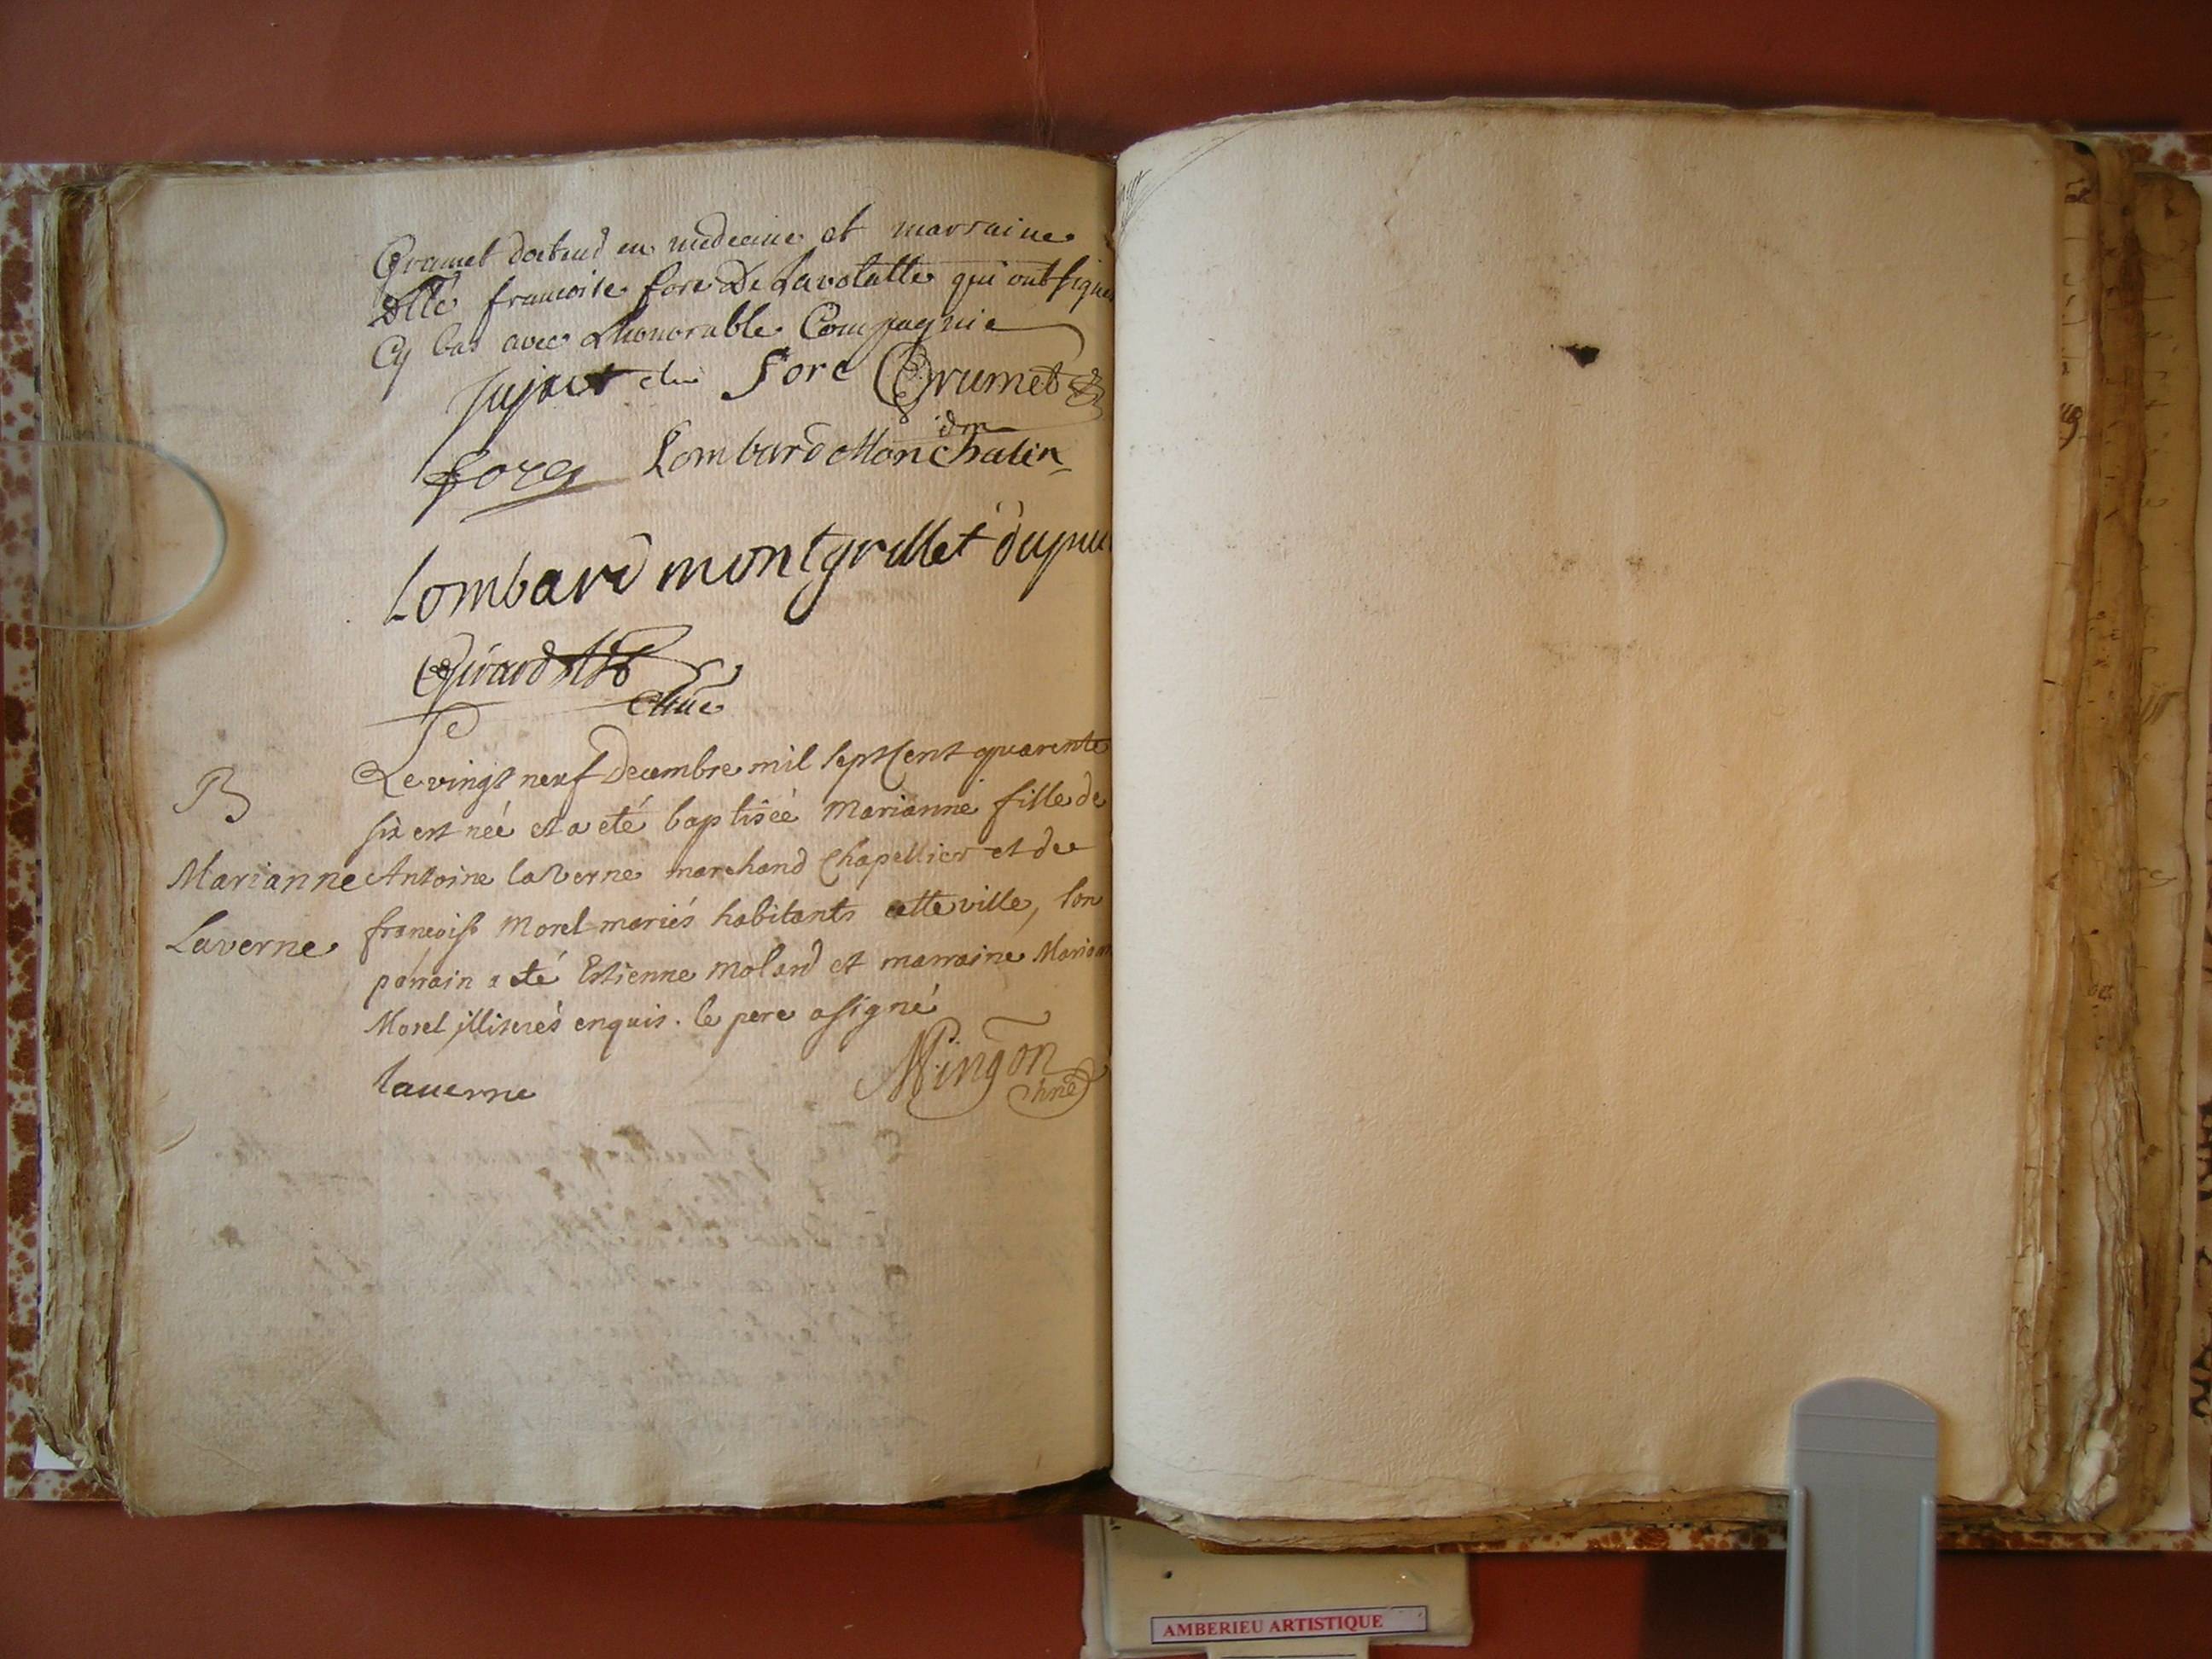 Grumet docteur en medecine et marraine
Dlle francoise fore De Lavolatte qui ont signé
Cy bas avec Lhonorable Compagnie
Sujact fore Grumet
dm
forej Lombard Monchalin
Lombard montgrillet dupui
Girard
Chne
Le vingt neuf Decembre mil sept Cent quarente
B
six est neé et a eté baptisée Marianne fille de
Marianne Antoine laverne marchand Chapellier et de
Laverne francoise Morel mariés habitants cette ville, son
parrain a eté Estienne Molard et marraine Mariann
Morel illiterés enquis. le pere a signé
laverne Mingon
chne
AMBERIEU ARTISTIQUE